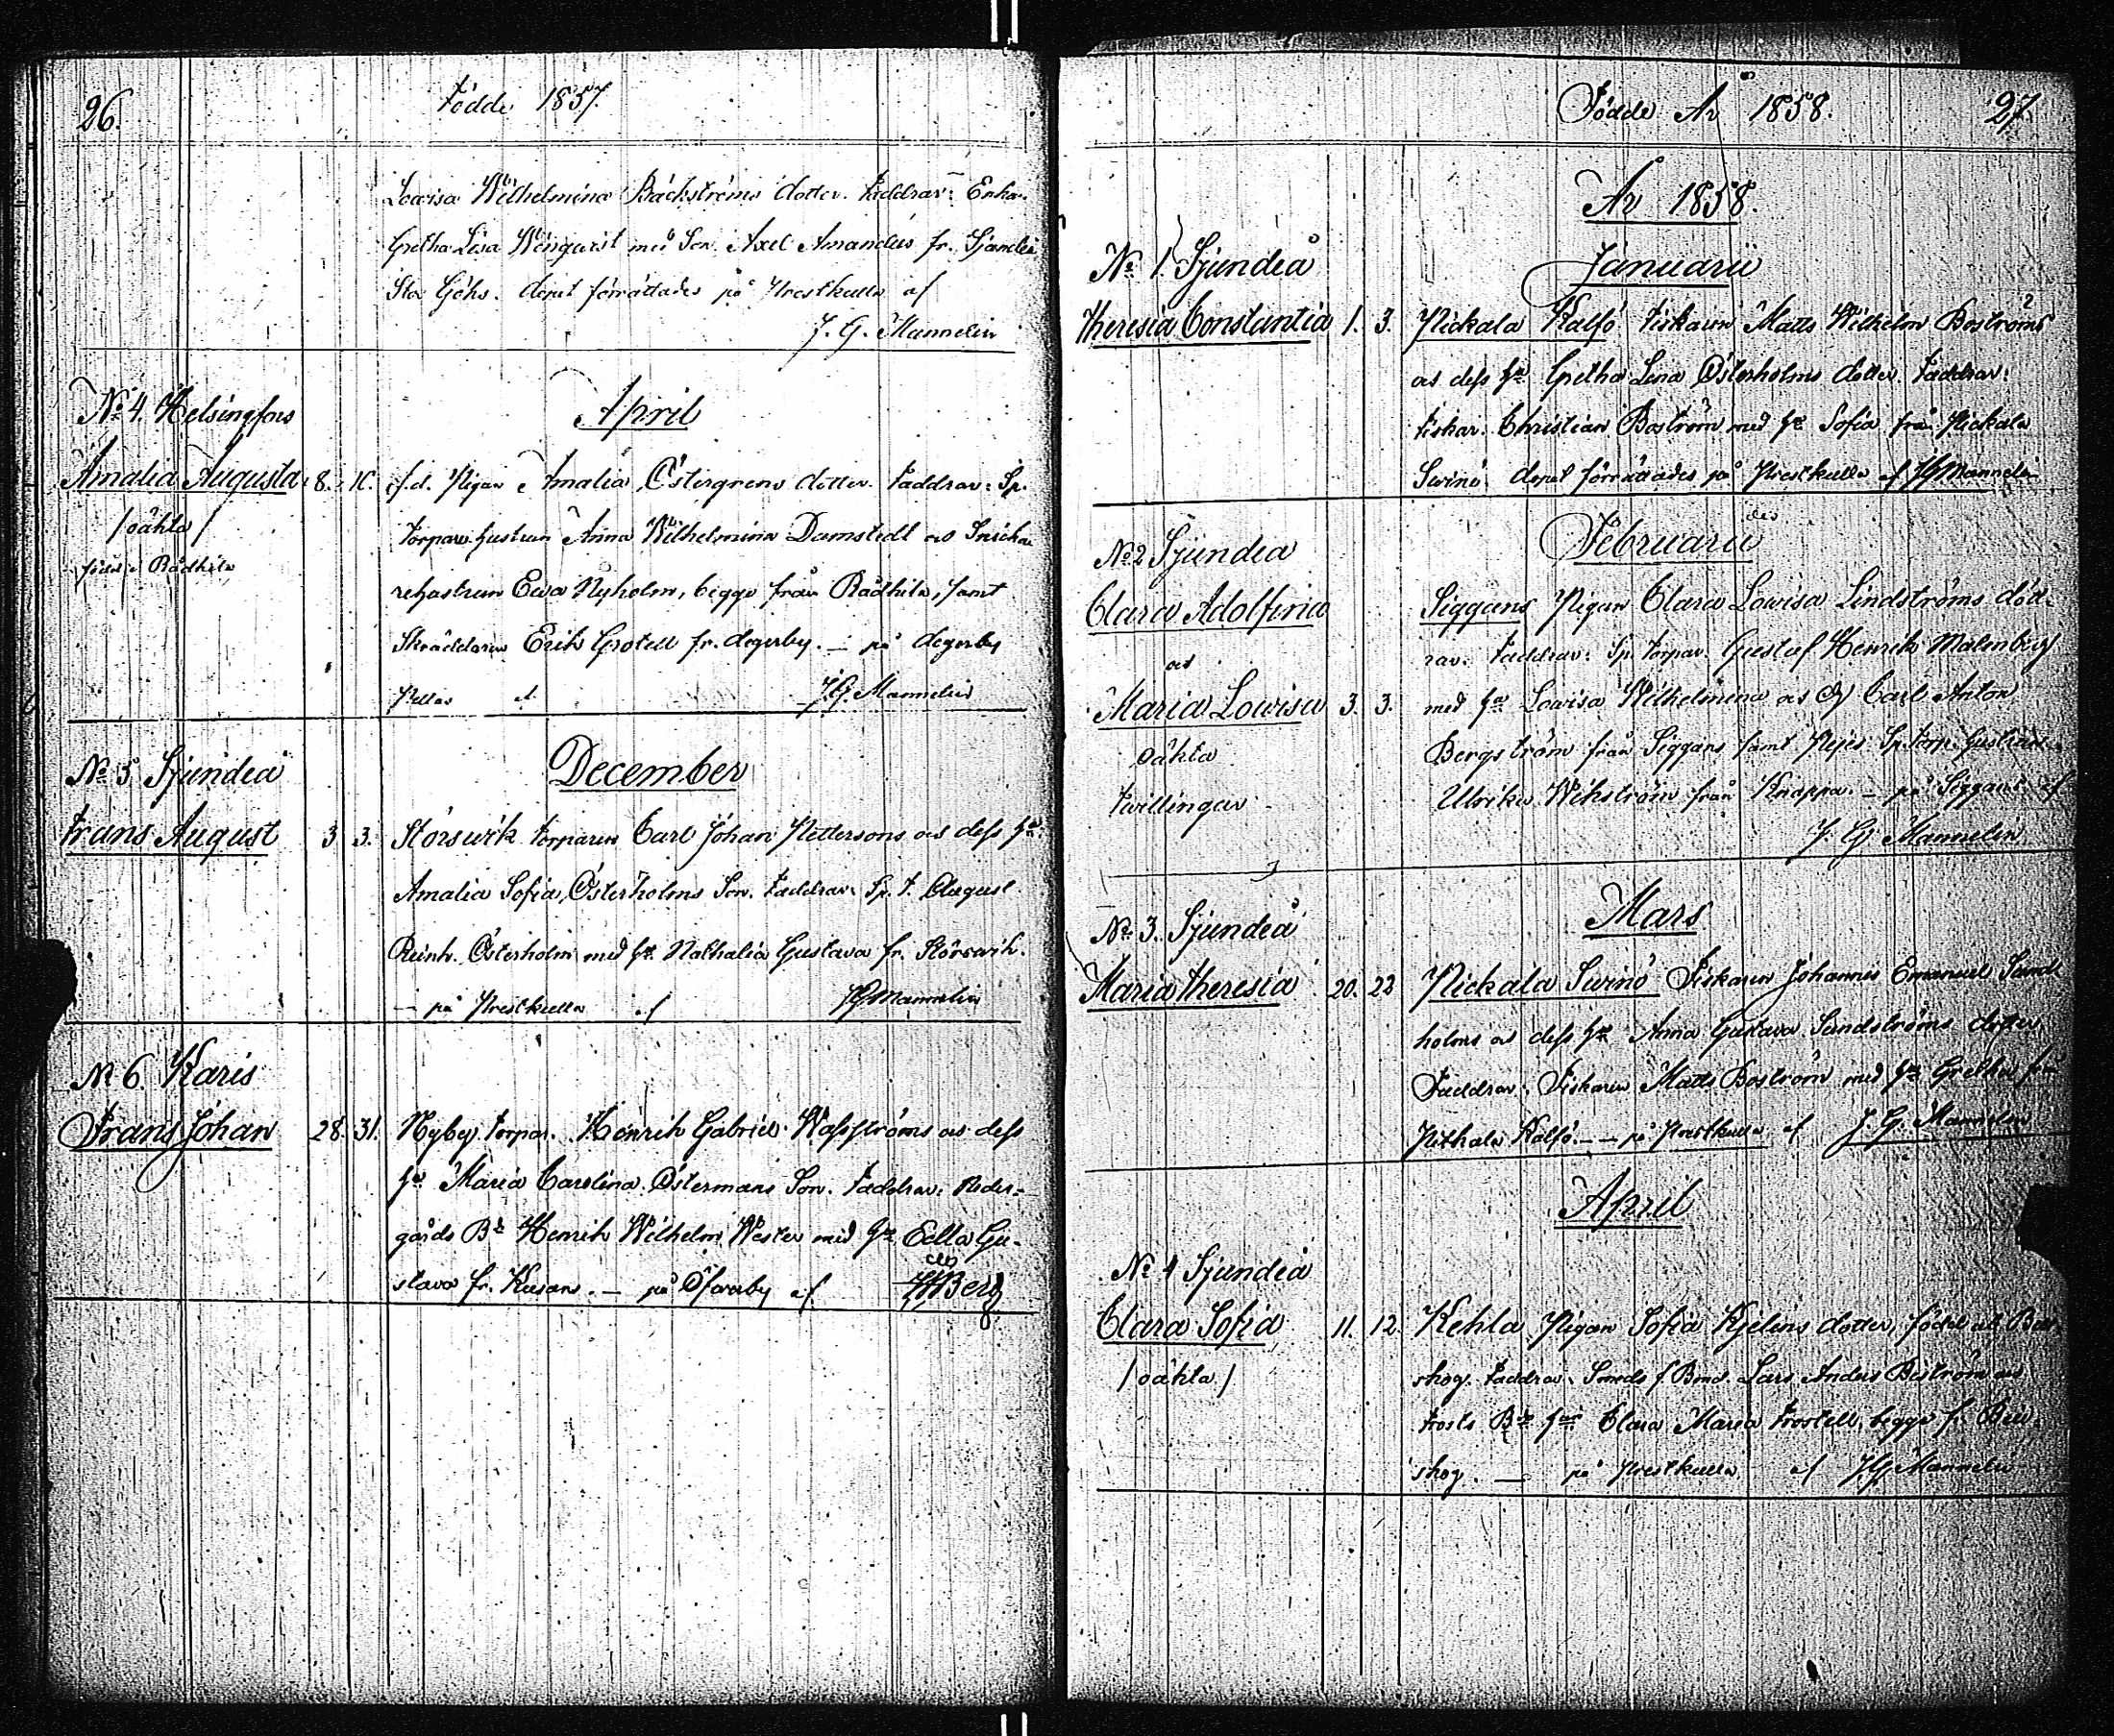 26.
Födde 1857.
Lovisa Wilhelmina Bäckströms dotter. Faddrar: Enka
Gretha Lisa Wenqwist med Son Axel Amandus fr. Sjundeå
Stor Göhs. Dopet förrättades på Prestkulla af
J. G. Mannelin
No 4. Helsingfors
April
Amalia Augusta 8. 10. f.d. Pigan Amalia Östergrens dotter. Faddrar: Sp.
/oäkta/
torpare hustrun Anna Wilhelmina Damstedt och Snicka
född i Rådkila
rehustrun Ewa Nyholm, begge från Rådkila, samt
Skräddaren Erik Grotell fr. degerby. — på degerby
Pellas af J. G. Mannelin
No 5 Sjundeå
December
Frans August 3. 3. Störsvik torparen Carl Johan Pettersons och dess hu
Amalia Sofia Österholms Son. Faddrar: Sp. t. August
Reinh. Österholm med hu Nathalia Gustava fr. Störsvik.
— på Prestkulla af JGMannelin
No 6. Karis
Frans Johan 28. 31. Nyby, torpar. Henrik Gabriel Wasströms och dess
hu Maria Carolina Östermans Son. Faddrar: Neder-
gårds Bde Henrik Wilhelm Wester med hu Edla Gu-
stava fr. Kusans. — på Öfverby af Berg
Födde År 1858.
27.
År 1858.
No 1. Sjundeå
Januarii
Theresia Constantia 1. 3. Pickala Kalfö fiskaren Matts Wilhelm Boströms
och dess hu Gretha Lena Österholms dotter. Faddrar:
fiskar. Christian Boström med hu Sofia från Pickala
Svinö dopet förrättades på Prestkulla af JGMannelin
Februarii
No 2 Sjundeå
Clara Adolfina
Siggans Pigan Clara Lovisa Lindströms dött-
och
rar. Faddrar: Sp. torpar. Gustaf Henrik Malmberg
Maria Lovisa 3. 3. med hu Lovisa Wilhelmina och Carl Anton
oäkta
Bergström från Siggans samt Pejes Sp. torp. hustrun
tvillingar
Ulrika Wikström från Knappa. — på Siggans af
J. G. Mannelin
No 3. Sjundeå
Mars
Maria Theresia 20. 22 Pickala Svinö Fiskaren Johannes Emanuel Sand
holms och dess hu Anna Gustava Sundströms dotter
Faddrar: Fiskaren Matts Boström med hu Gretha från
Pickala Kalfö. — — på Prestkulla af J. G. Mannelin
April
No 4 Sjundeå
Clara Sofia 11. 12. Kehla Pigan Sofia Kjelins dotter, född
/oäkta/
skog. Faddrar: Smeds f. Bond. Lars Anders Biström och
Frosts Bde hu Clara Maria Frostell, begge fr.
skog. — på Prestkulla af J. G. Mannelin